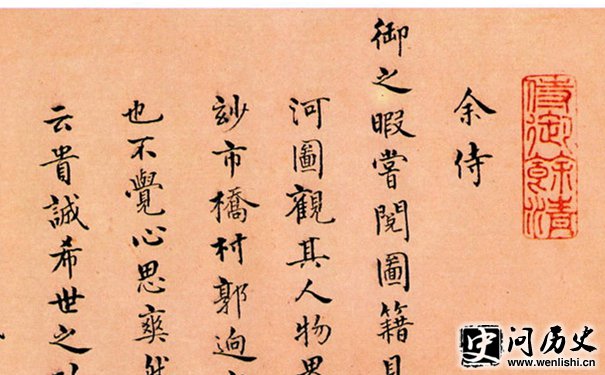 侍御餘清
余侍
御之暇嘗閱圖籍見
河圖觀其人物界
玅市橋村郭迥
也不覺心思爽然
云貴誠希世之
问历史
www.wenlishi.cn